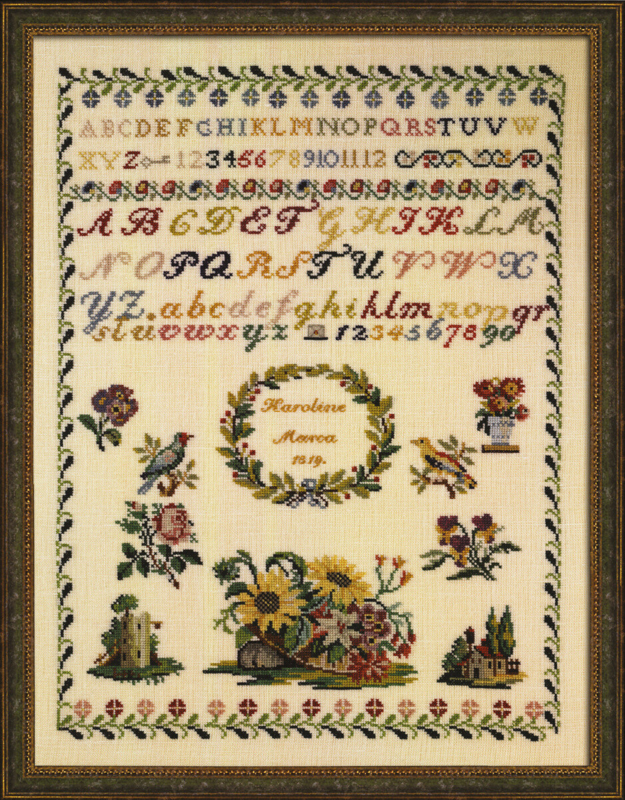 ABCDEFGHIKLMNOPQRSTUVW
XYZ 123456789101112
ABCDEFGHIKLM
NOPQRSTUVWX
YZ.abcdefghiklmnopqr
stuvwxyz 1234567890
Karoline
1819.